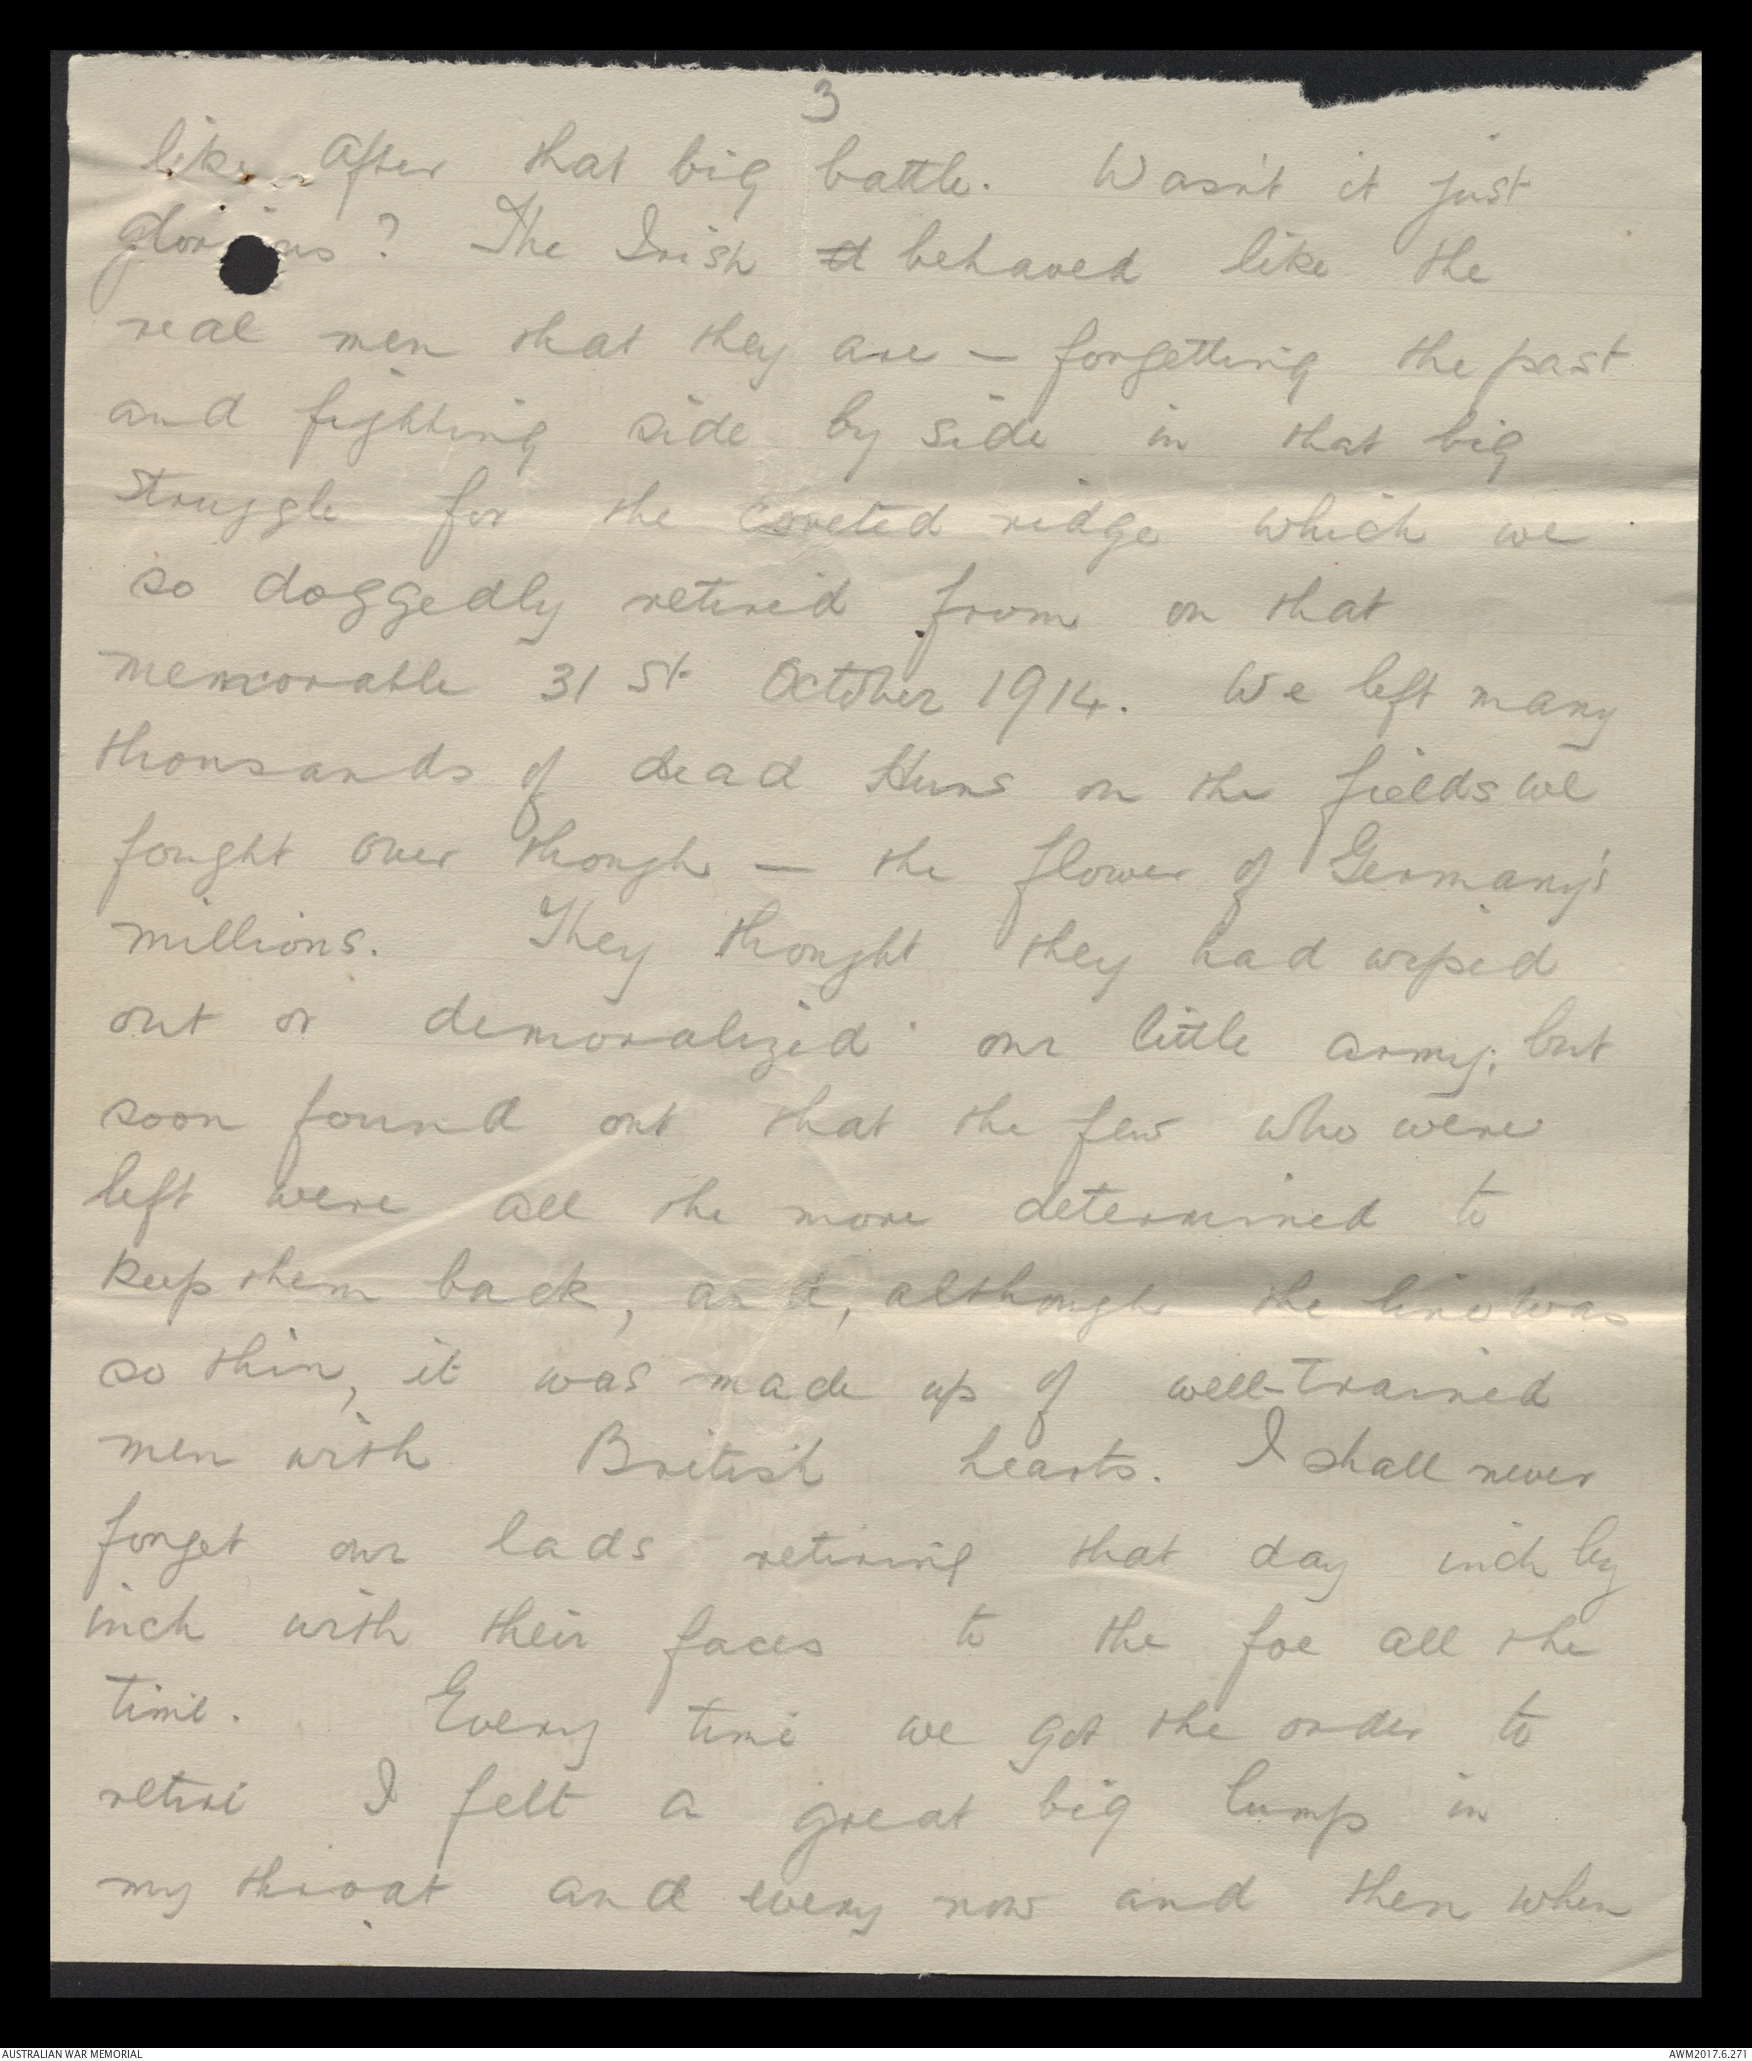 3
like after that big battle. Wasn't it just
glorious? The Irish d behaved like the
real men that they are – forgetting the past
and fighting side by side in that big
struggle for the coveted ridge which we
so doggedly retired from on that
memorable 31st October 1914. We left many
thousands of dead Huns on the fields we
fought over though – the flower of Germany's
millions. They thought they had wiped
out or demoralized our little army; but
soon found out that the few who were
left were all the more determined to
keep them back, and, although the line was
so thin, it was made up of well-trained
men with British hearts. I shall never
forget our lads retiring that day inch by
inch with their faces to the foe all the
time. Every time we got the order to
retire I felt a great big lump in
my throat and every now and then when
AUSTRALIAN WAR MEMORIAL
AWM2017.6.271